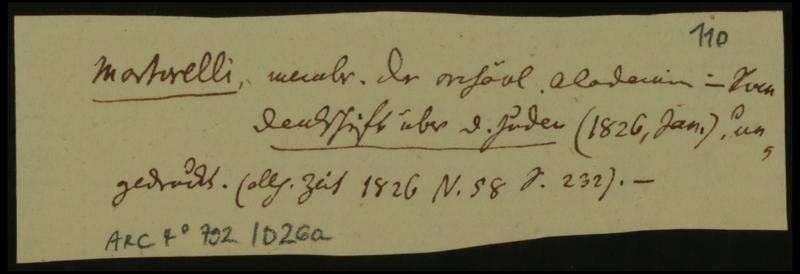 110
Martorelli, membr. der archäol. Academie – 
Denkschrift über d. Juden (1826, Jan.), un,
gedruckt. (allg. Zeit 1826 N. 58 S. 232). —
ARC 4° 792 / D26a